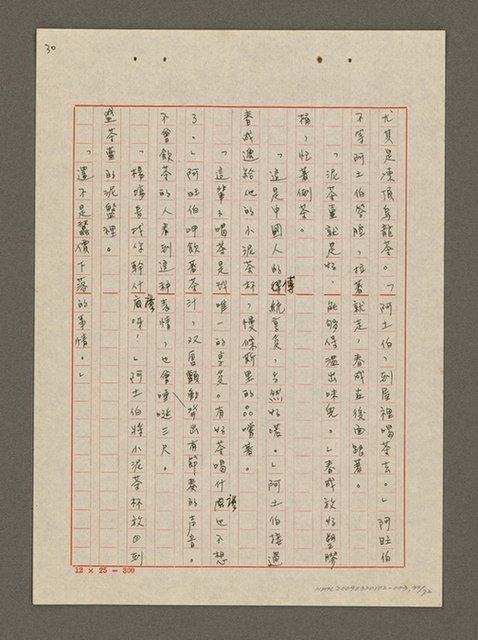 30
尤其是凍頂烏龍茶。「阿土伯，到屋裡喝茶去。」阿旺伯
不等阿土伯答應，拉著就走，春成在後面跟著。
「泥茶壺就是好，能夠保溫出味兒。」春成放好塑膠
桶，忙著倒茶。
「這是中國人的傳統享受，當然好喏。」阿土伯接過
春成遞給他的小泥茶杯，慢條斯里的品嚐著。
「這輩子喝茶是我唯一的享受。有好茶喝什麼也不想
了。」阿旺伯呷飲著茶汁，双唇顫動發出有節奏的声音。
不會飲茶的人看到這種表情，也會唾涎三尺。
「楊場長找你幹什麼呀，」阿土伯將小泥茶杯放回到
盛茶壺的泥盤裡。
「還不是蠶價下落的事情。」
12 × 25 = 300